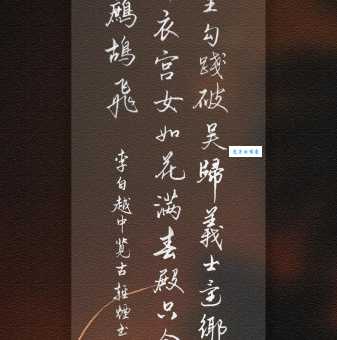 王勾踐破吳歸義士還鄉
衣宮女如花滿春殿只今
鷓鴣飛
李白越中覽古